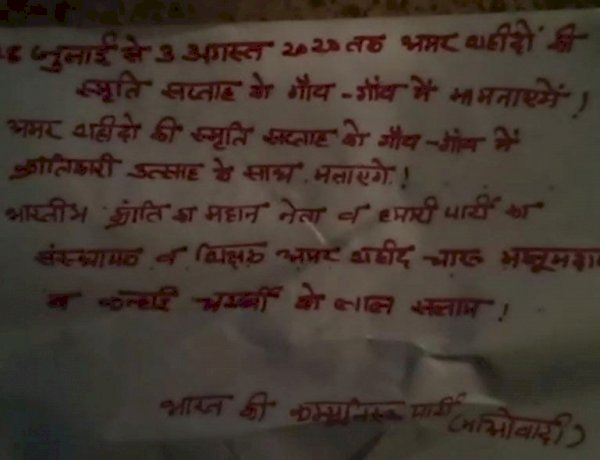 जुलाई से 3 अगस्त 2020 तक अमर शहीदों की
स्मृति सप्ताह को गाँव-गाँव में मनाएगें!
अमर शहीदो की स्मृति सप्ताह को गाँव-गाँव में
क्रांतिकारी उत्साह के साथ मनाएगे!
भारतीय क्रांति का महान नेता व हमारी पार्टी का
संस्थापक व शिक्षक अमर शहीद चारू मजूमदार
व कन्हाई चटर्जी को लाल सलाम!
भारत की कम्युनिस्ट पार्टी (माओवादी)